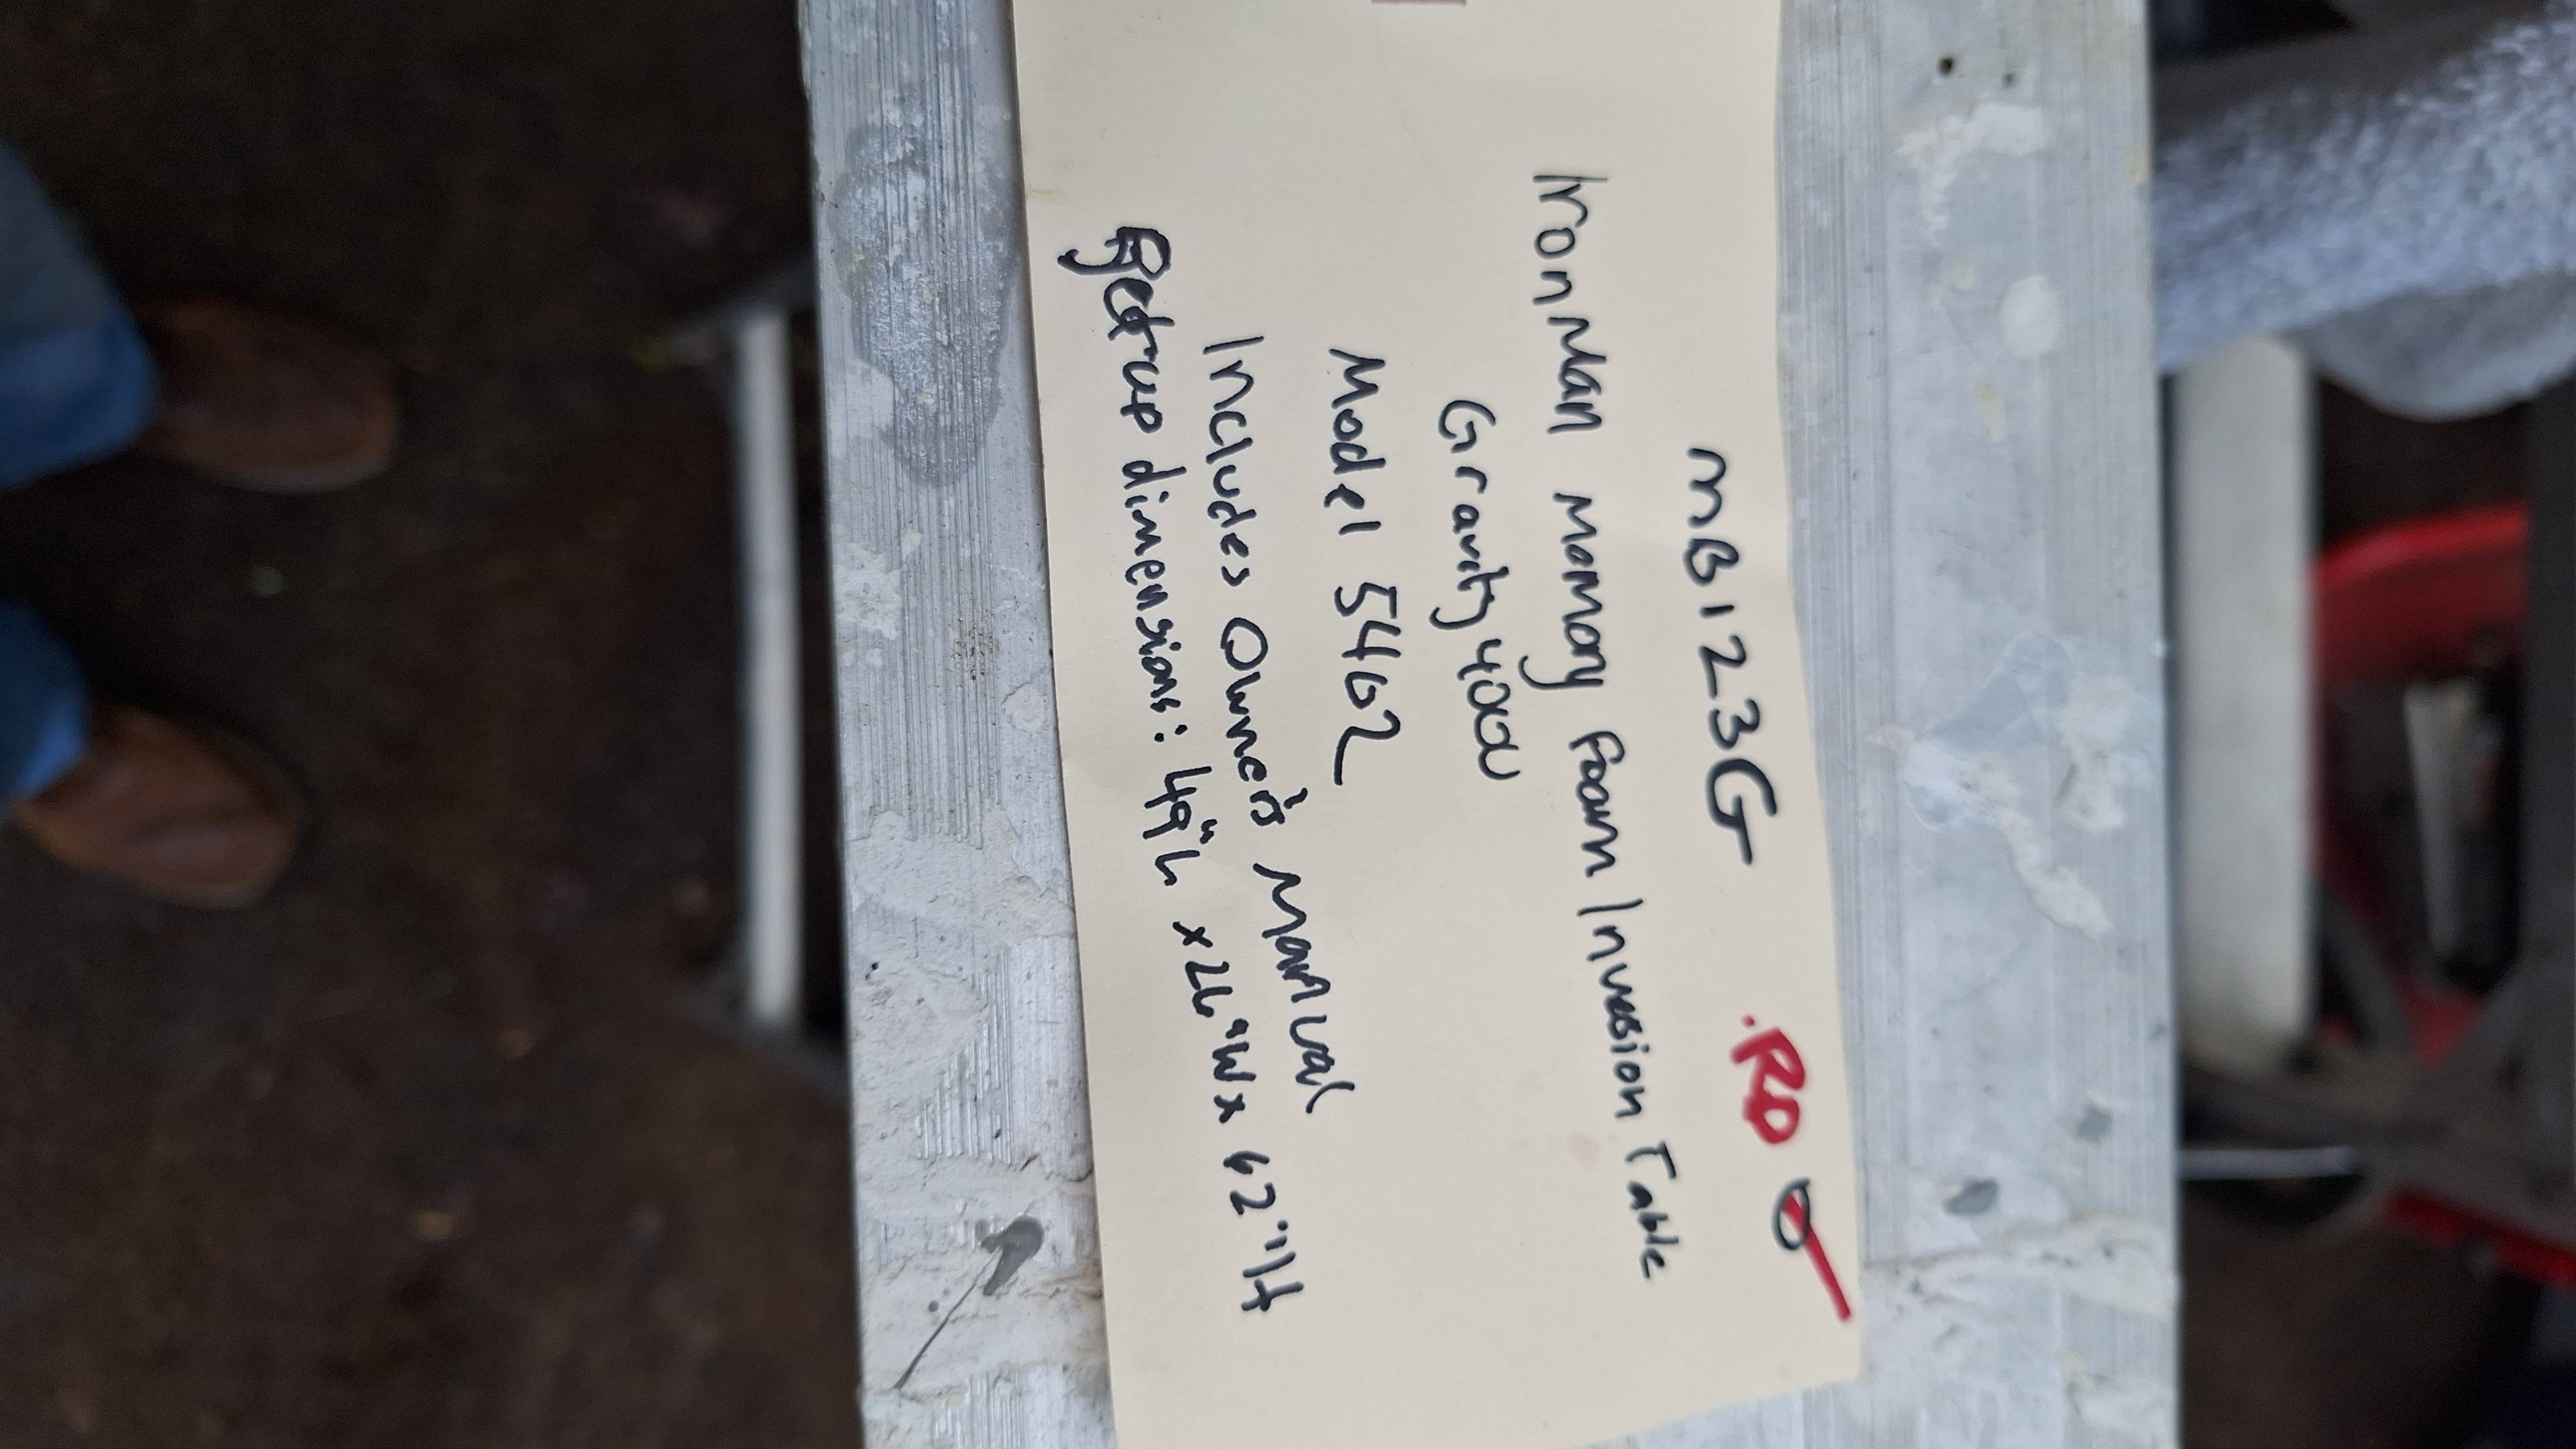 MB123G .RD
IronMan Memory Foam Inversion Table
Gravity 4000
Model 5462
Includes Owner's Manual
Setup dimensions: 49"L x 26"W x 62"H